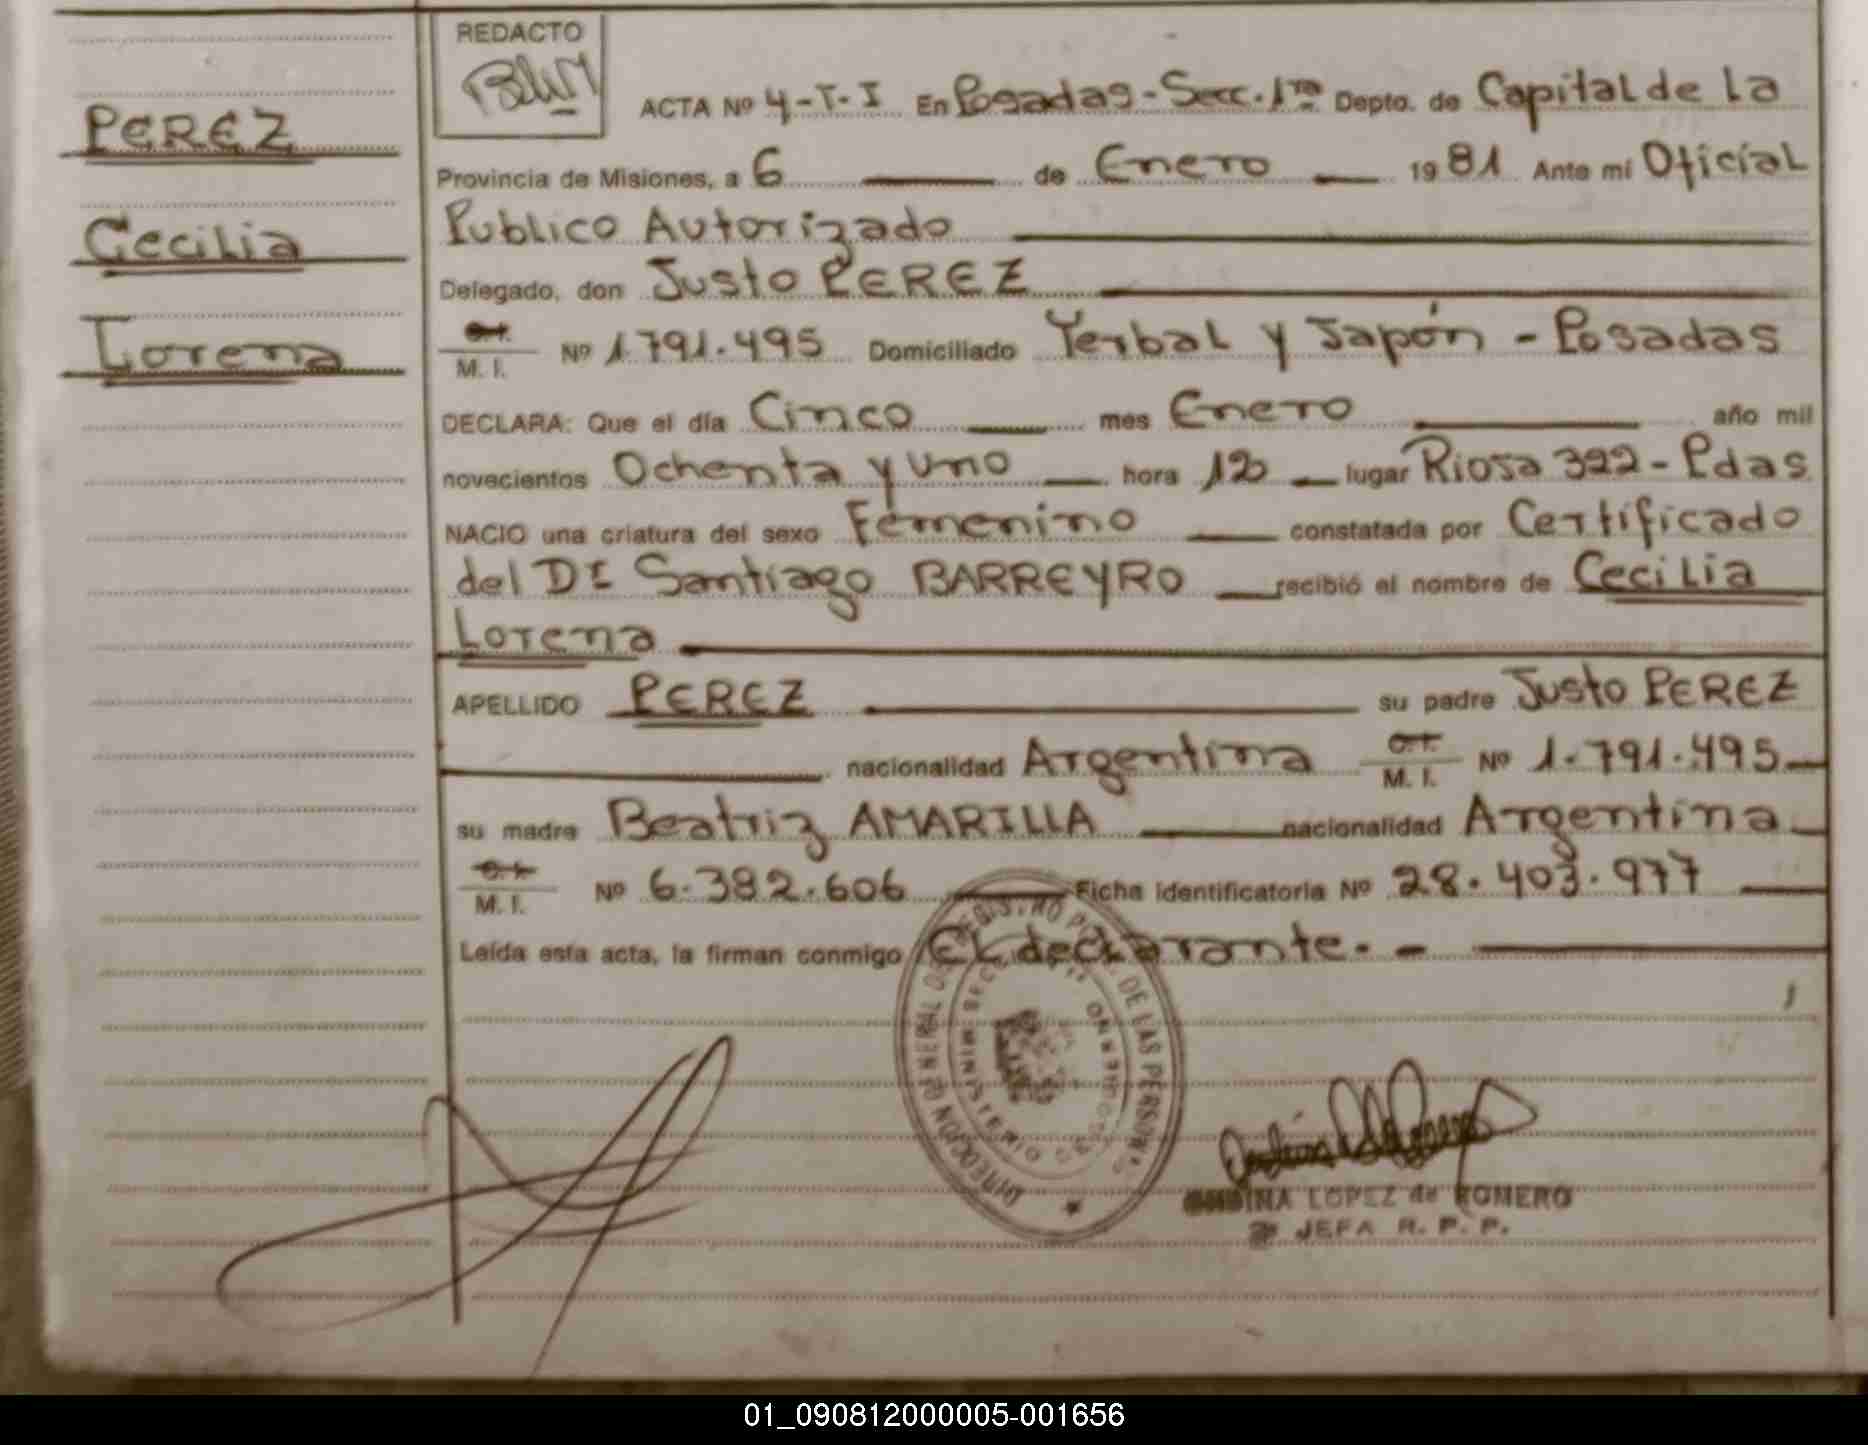 REDACTO
PEREZ
Cecilia
Lorena
ACTA Nº 4-T-I En Posadas-Secc.1ra Depto. de Capital de la
Provincia de Misiones, a 6 de Enero 1981 Ante mí Oficial
Publico Autorizado
Delegado, don Justo PEREZ
M. I. Nº 1.791.495 Domiciliado Yerbal y Japón - Posadas
DECLARA: Que el día Cinco mes Enero año mil
novecientos Ochenta y uno hora 12 lugar 322 - Pdas
NACIO una criatura del sexo Femenino constatada por Certificado
del Dr Santiago BARREYRO recibió el nombre de Cecilia
Lorena
APELLIDO PEREZ su padre Justo PEREZ
nacionalidad Argentina M. I. Nº 1.791.495
su madre Beatriz AMARILLA nacionalidad Argentina
M. I. Nº 6.382.606 Ficha identificatoria Nº 28.403.977
Leída esta acta, la firman conmigo El declarante.-
LOPEZ de ROMERO
JEFA R. P. P.
01_090812000005-001656